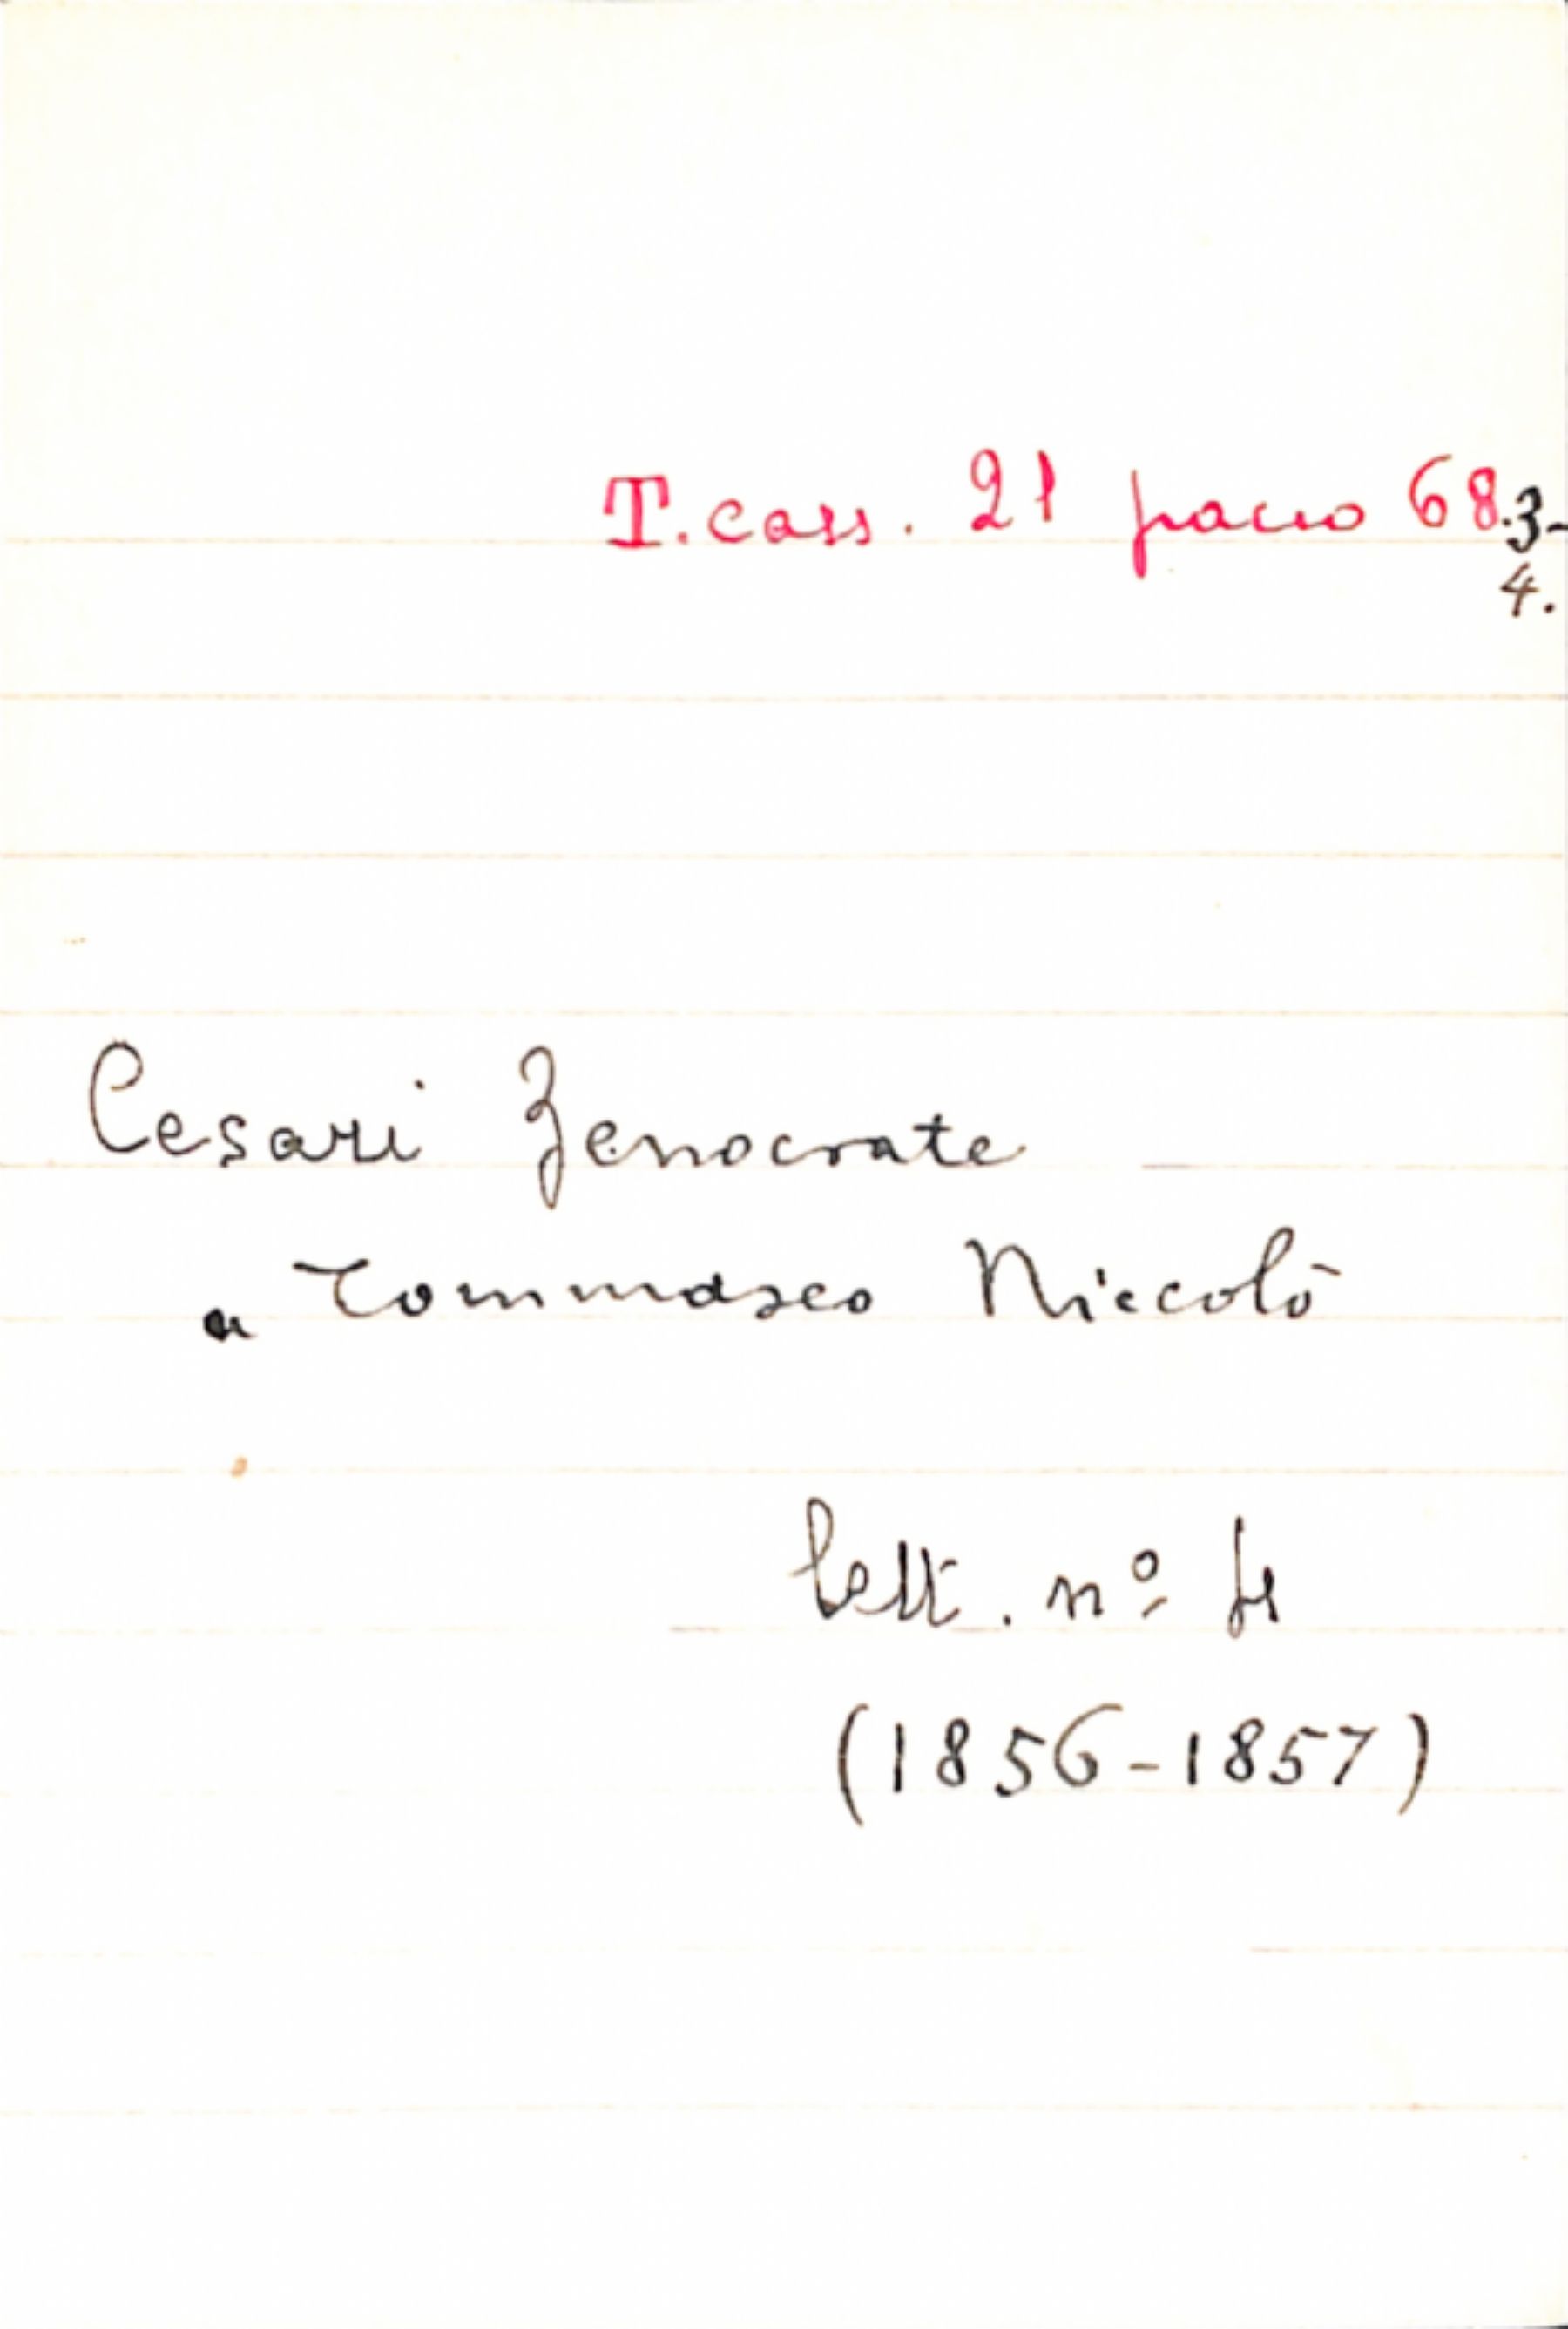 T. cass. 21 pacco 68.3-
4.
Cesari Zenocrate
a Tommaseo Niccolò
lett. nº 4
(1856-1857)